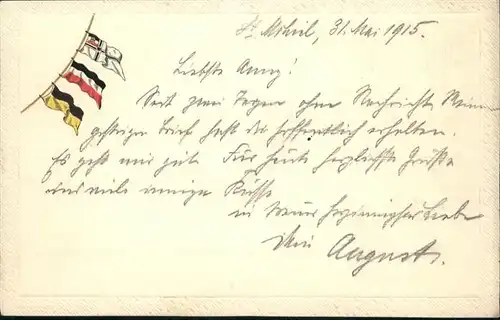 St. Mihiel, 31. Mai 1915.
Liebste Anny!
Seit zwei Tagen ohne Nachricht. Meinen
gestrigen Brief hast du hoffentlich erhalten.
Es geht mir gut. Für heute herzlichste Grüße
und viele innige Küsse
in treuer Liebe
Dein August.